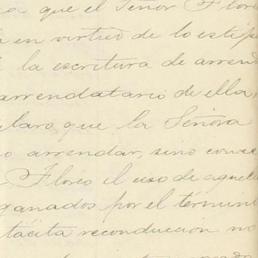 que el Señor Flore
en virtud de lo estip
la escritura de arrend
arrendatario de ella,
claro, que la Señora
arrendar, sino conce
Flores el uso de aquel
ganados por el termin
tácita reconducción no